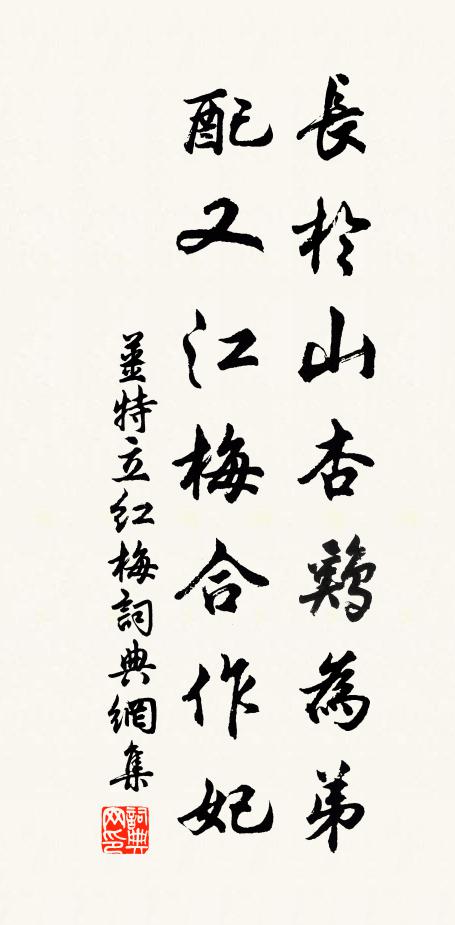 長於山杏難為弟
配又江梅合作妃
薑特立紅梅詞典網集
詞典网印